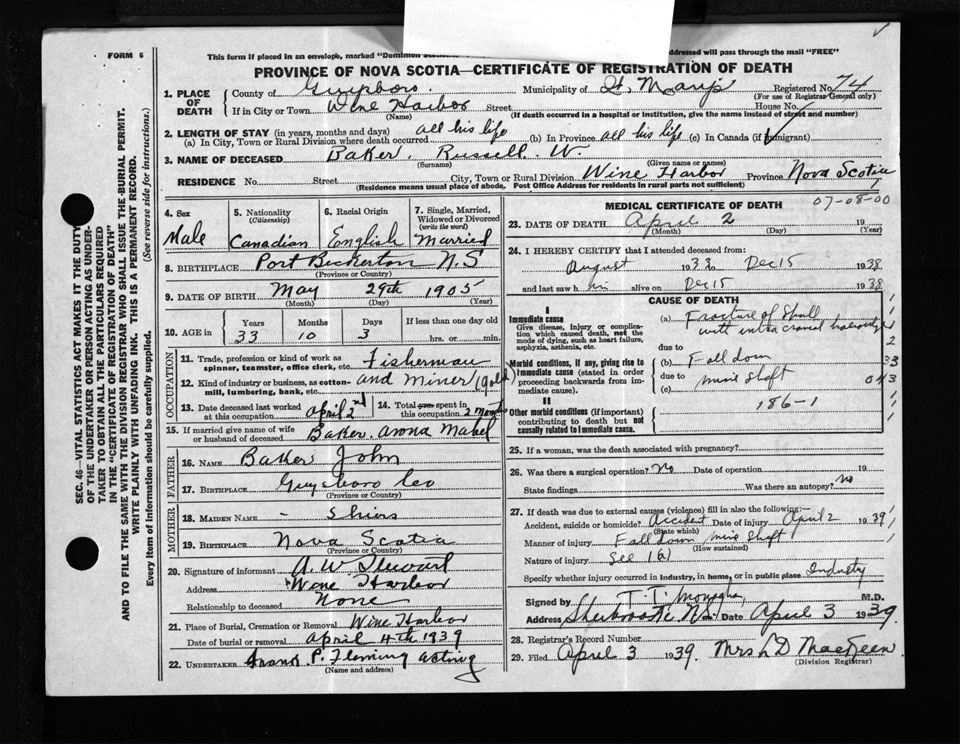 FORM 6
This form if placed in an envelope, marked "Dominion
addressed will pass through the mail "FREE"
PROVINCE OF NOVA SCOTIA—CERTIFICATE OF REGISTRATION OF DEATH
1. PLACE OF DEATH County of Guysboro. Municipality of St. Marys Registered No. 74
(For use of Registrar General only)
If in City or Town Wine Harbor Street House No.
(Name) (If death occurred in a hospital or institution, give the name instead of street and number)
2. LENGTH OF STAY (in years, months and days)
(a) In City, Town or Rural Division where death occurred all his life (b) In Province all his life (c) In Canada (if immigrant)
3. NAME OF DECEASED Baker, Russell. W.
(Surname) (Given name or names)
RESIDENCE No. Street City, Town or Rural Division Wine Harbor Province Nova Scotia
(Residence means usual place of abode, Post Office Address for residents in rural parts not sufficient)
07-08-00
4. Sex Male
5. Nationality (Citizenship) Canadian
6. Racial Origin English
7. Single, Married, Widowed or Divorced (write the word) Married
8. BIRTHPLACE Port Beckerton N.S
(Province or Country)
9. DATE OF BIRTH May 29th 1905
(Month) (Day) (Year)
10. AGE in Years 33 Months 10 Days 3 If less than one day old hrs. or min.
OCCUPATION
11. Trade, profession or kind of work as spinner, teamster, office clerk, etc. Fisherman
12. Kind of industry or business, as cotton-mill, lumbering, bank, etc. and miner (gold)
13. Date deceased last worked at this occupation April 2nd
14. Total years spent in this occupation 2 months
15. If married give name of wife or husband of deceased Baker. Arona Mabel
FATHER
16. NAME Baker John
17. BIRTHPLACE Guysboro Co
(Province or Country)
MOTHER
18. MAIDEN NAME - Shiers
19. BIRTHPLACE Nova Scotia
(Province or Country)
20. Signature of informant A. W Stewart
Address Wine Harbor
Relationship to deceased None
21. Place of Burial, Cremation or Removal Wine Harbor
Date of burial or removal April 4th 1939
22. UNDERTAKER Frank P. Fleming acting
(Name and address)
MEDICAL CERTIFICATE OF DEATH
23. DATE OF DEATH April 2 19
(Month) (Day) (Year)
24. I HEREBY CERTIFY that I attended deceased from:
August 1933 to Dec 15 1938
and last saw h im alive on Dec 15 1938
CAUSE OF DEATH
I
Immediate cause
Give disease, injury or complication which caused death, not the mode of dying, such as heart failure, asphyxia, asthenia, etc.
(a) Fracture of Skull
with intra cranial
due to
Morbid conditions, if any, giving rise to immediate cause (stated in order proceeding backwards from immediate cause).
(b) Fall down
due to mine shaft
(c)
186-1
II
Other morbid conditions (if important) contributing to death but not causally related to immediate cause.
25. If a woman, was the death associated with pregnancy?
26. Was there a surgical operation? No Date of operation 19
State findings Was there an autopsy? no
27. If death was due to external causes (violence) fill in also the following:—
Accident, suicide or homicide? Accident Date of injury April 2 1939
(State which)
Manner of injury Fall down mine shaft
(How sustained)
Nature of injury See 1(a)
Specify whether injury occurred in industry, in home, or in public place Industry
Signed by M.D.
Address Sherbrooke N.S. Date April 3 1939
28. Registrar's Record Number
29. Filed April 3 1939. Mrs L D MacKeen
(Division Registrar)
SEC. 46—VITAL STATISTICS ACT MAKES IT THE DUTY
OF THE UNDERTAKER OR PERSON ACTING AS UNDERTAKER TO OBTAIN ALL THE PARTICULARS REQUIRED
IN THE "CERTIFICATE OF REGISTRATION OF DEATH"
AND TO FILE THE SAME WITH THE DIVISION REGISTRAR WHO SHALL ISSUE THE BURIAL PERMIT.
WRITE PLAINLY WITH UNFADING INK. THIS IS A PERMANENT RECORD.
Every item of information should be carefully supplied. (See reverse side for instructions.)